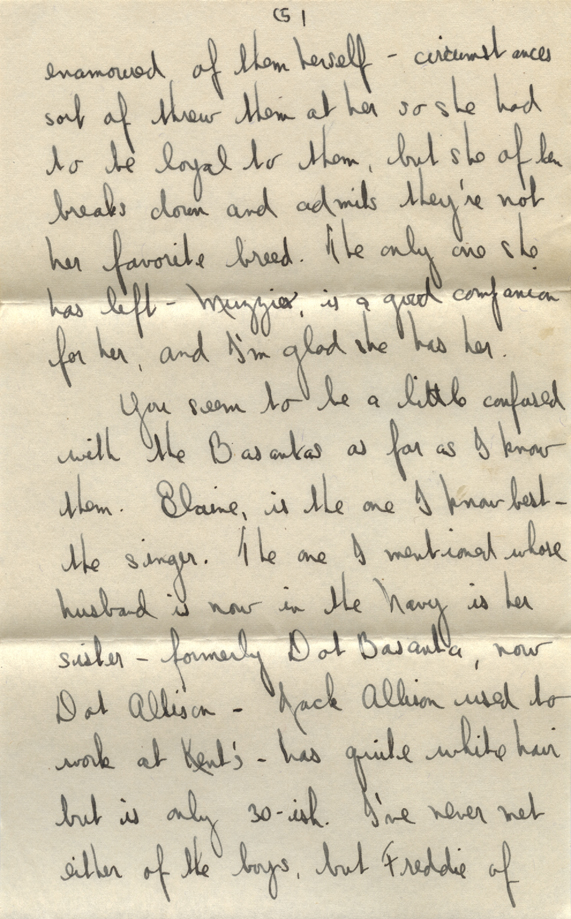 (5)
enamoured of them herself - circumstances
sort of threw them at her so she had
to be loyal to them, but she often
breaks down and admits they're not
her favorite breed. The only one she
has left - Muzzie, is a good companion
for her, and I'm glad she has her.
You seem to be a little confused
with the Basantas as far as I know
them. Elaine, is the one I know best -
the singer. The one I mentioned whose
husband is now in the Navy is her
sister - formerly Dot Basanta, now
Dot Allison - Jack Allison used to
work at Kent's - has quite white hair
but is only 30-ish. I've never met
either of the boys, but Freddie of